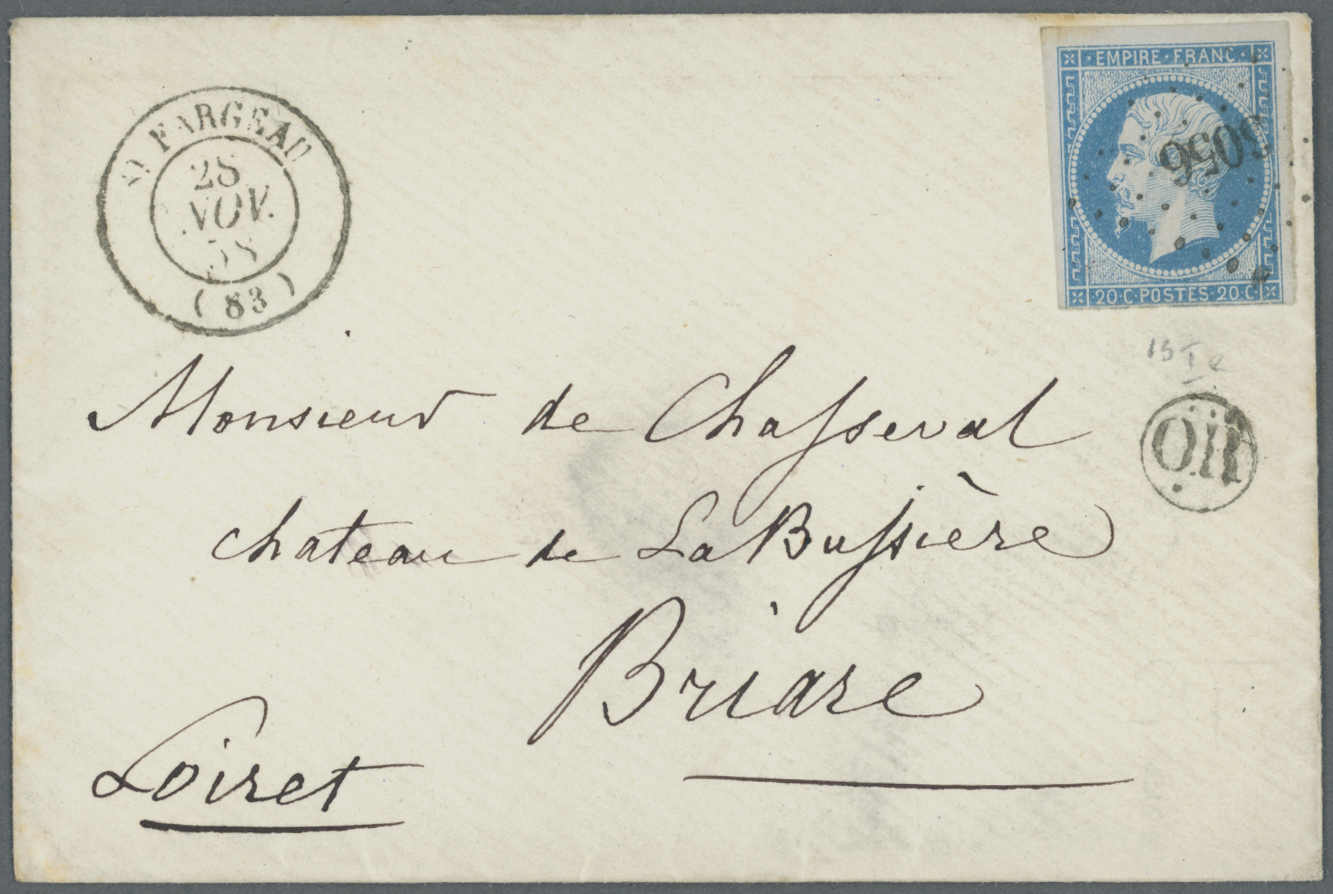 ST FARGEAU
28
NOV.
58
( 83 )
EMPIRE FRANC
3056
20·C·POSTES·20·C
15
OR
Monsieur de Chasseval
chateau de La Bussière
Briare
Loiret